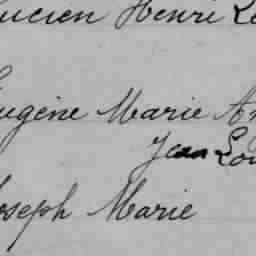 Lucien Henri Lo
Eugène Marie An
Jean Lou
Joseph Marie